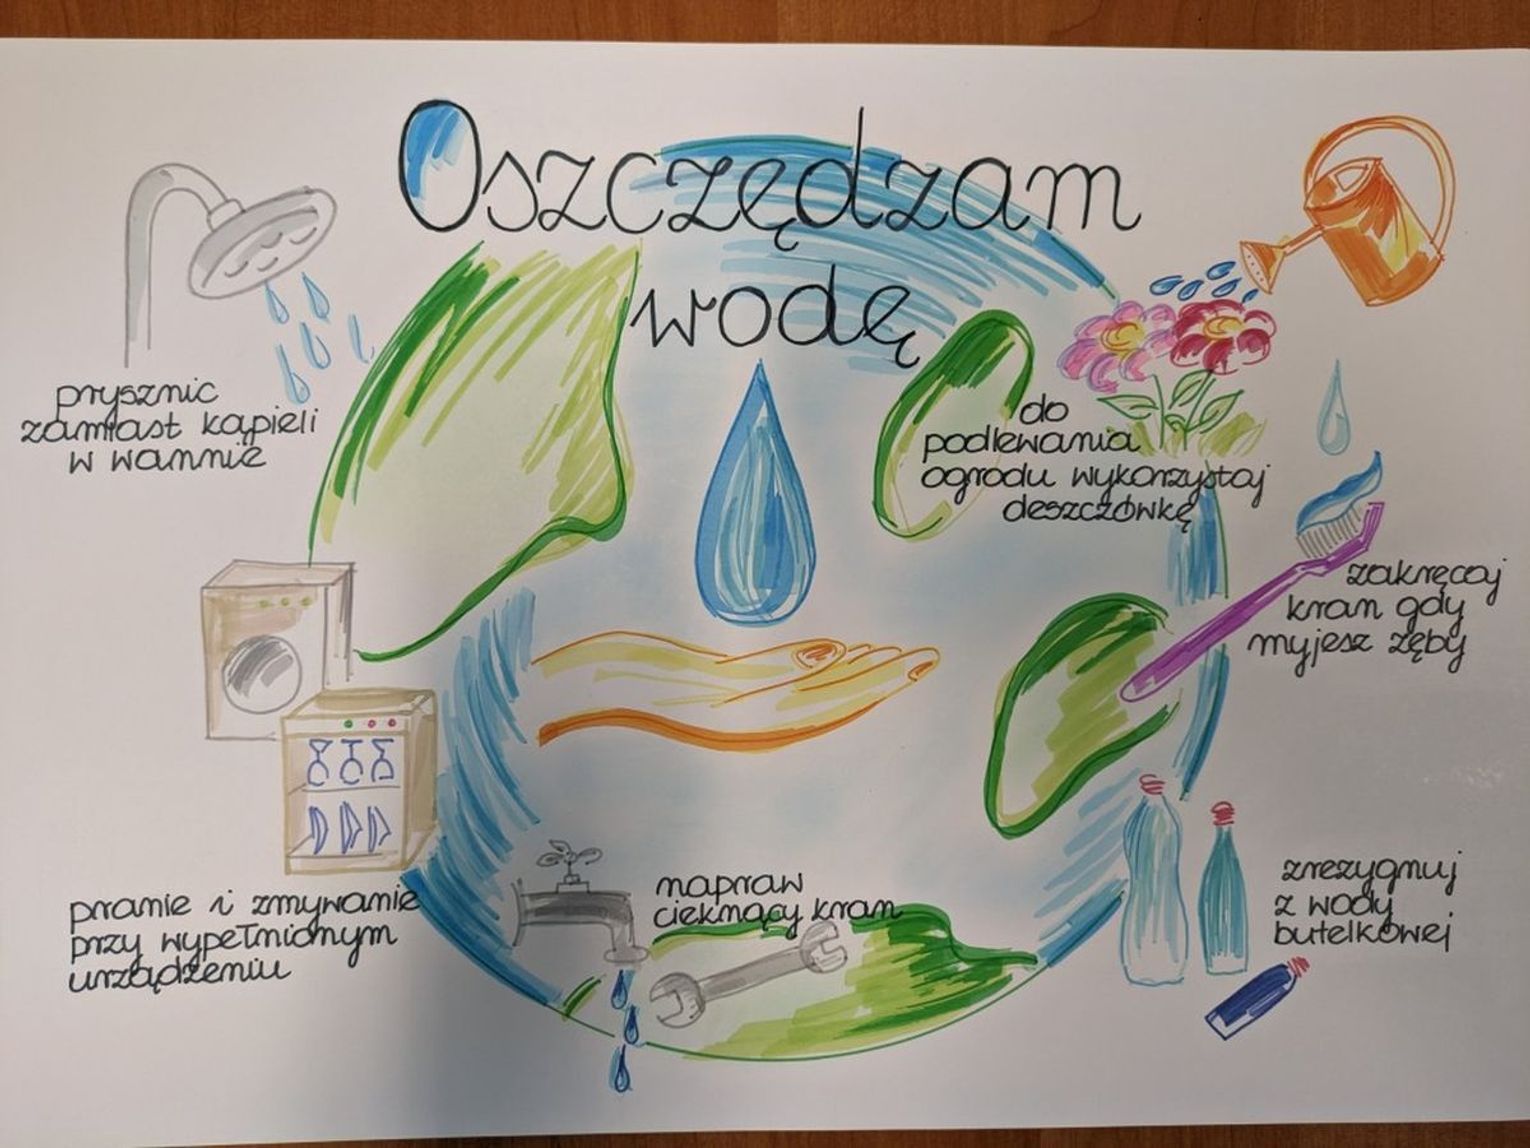 Oszczędzam
wodę
prysznic
zamiast kąpieli
w wannie
do
podlewania
ogrodu wykorzystaj
deszczówkę
zakręcaj
kran gdy
myjesz zęby
pranie i zmywanie
przy wypełnionym
urządzeniu
napraw
cieknący kran
zrezygnuj
z wody
butelkowej